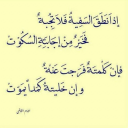 إذا نطق السفيه فلا تجبه
فخير من إجابته السكوت
فإن كلمته فرجت عنه
وإن خليته كمدا يموت